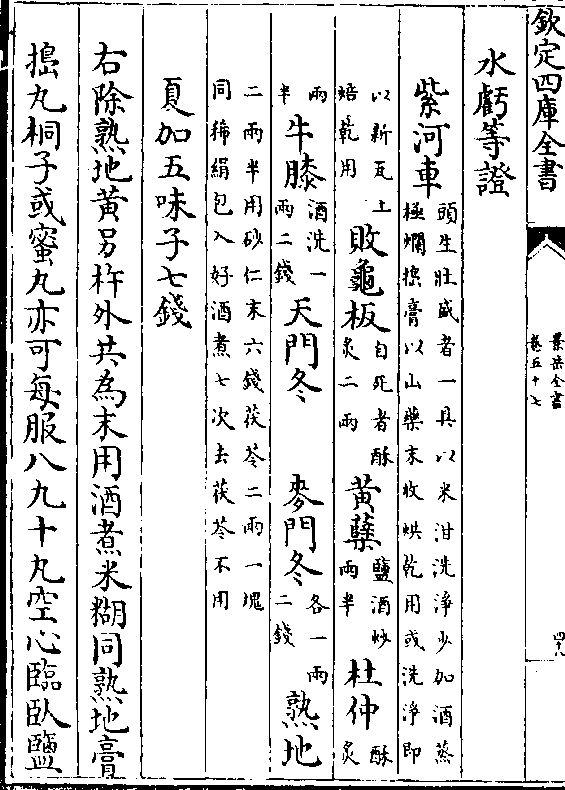 欽定四庫全書
景岳全書
卷五十七
四十九
水虧等證
紫河車頭生壯盛者一具以米泔洗淨少加酒蒸極爛搗膏以山藥末收烘乾用或洗淨即
以新瓦上焙乾用敗龜板自死者酥炙二兩黃蘗鹽酒炒兩半杜仲酥炙
兩半牛膝酒洗一兩二錢天門冬麥門冬各一兩二錢熟地
二兩半用砂仁末六錢茯苓二兩一塊同稀絹包入好酒煮七次去茯苓不用
夏加五味子七錢
右除熟地黃另杵外共為末用酒煮米糊同熟地膏
搗丸桐子或蜜丸亦可每服八九十丸空心臨臥鹽